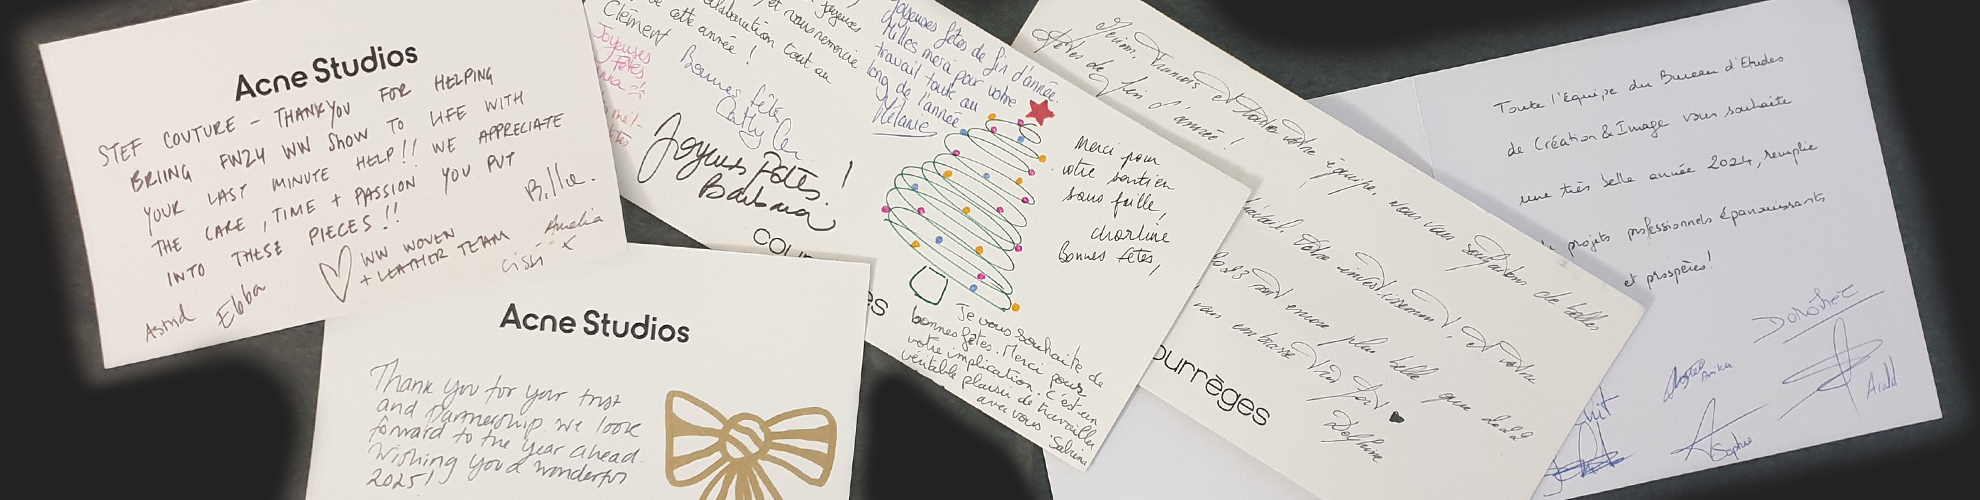 Acne Studios
STEF COUTURE - THANKYOU FOR HELPING
BRIING FW24 WW SHOW TO LIFE WITH
YOUR LAST MINUTE HELP!! WE APPRECIATE
THE CARE, TIME + PASSION YOU PUT
INTO THESE PIECES!!
Billie.
WW WOVEN
+ LEATHER TEAM
Amelia
x
Astrid
Ebba
Acne Studios
Thank you for your trust
and Partnership. We look
forward to the year ahead.
Wishing you a wonderful
2025!
et vous remercie
collaboration tout au
de cette année !
Clément
Joyeuses
Fêtes
Bonnes fête
Cathy
Joyeuses Fêtes !
Barbara
Joyeuses fêtes de fin d'année.
Milles merci pour votre
travail tout au
long de l'année
Mélanie
Merci pour
votre soutien
sans faille,
charline
Bonnes fêtes,
Je vous souhaite de
bonnes fêtes. Merci pour
votre implication. C'est un
véritable plaisir de travailler
avec vous Sabrina
Fêtes de fin d'année !
équipe, nous vous souhaitons de belles
travail, votre investissement, et votre
2023 soit encore plus belle que 2022
vous embrasse très fort
Delphine
ourrèges
Toute l'équipe du Bureau d'Etudes
de Création & Image vous souhaite
une très belle année 2024, remplie
projets professionnels épanouissants
et prospères!
Dorothée
Anika
Sophie